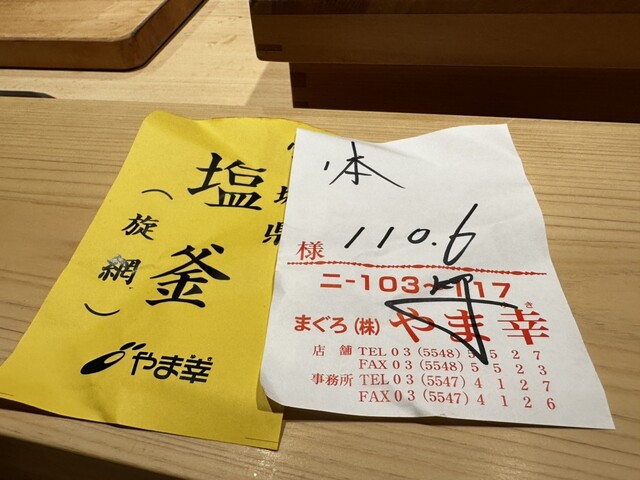 塩釜
(旋網)
やま幸
本
110.6
様
ニ-103~117
まぐろ(株)やま幸
き
店舗 TEL 03(5548)5527
FAX 03(5548)5523
事務所 TEL 03(5547)4127
FAX 03(5547)4126